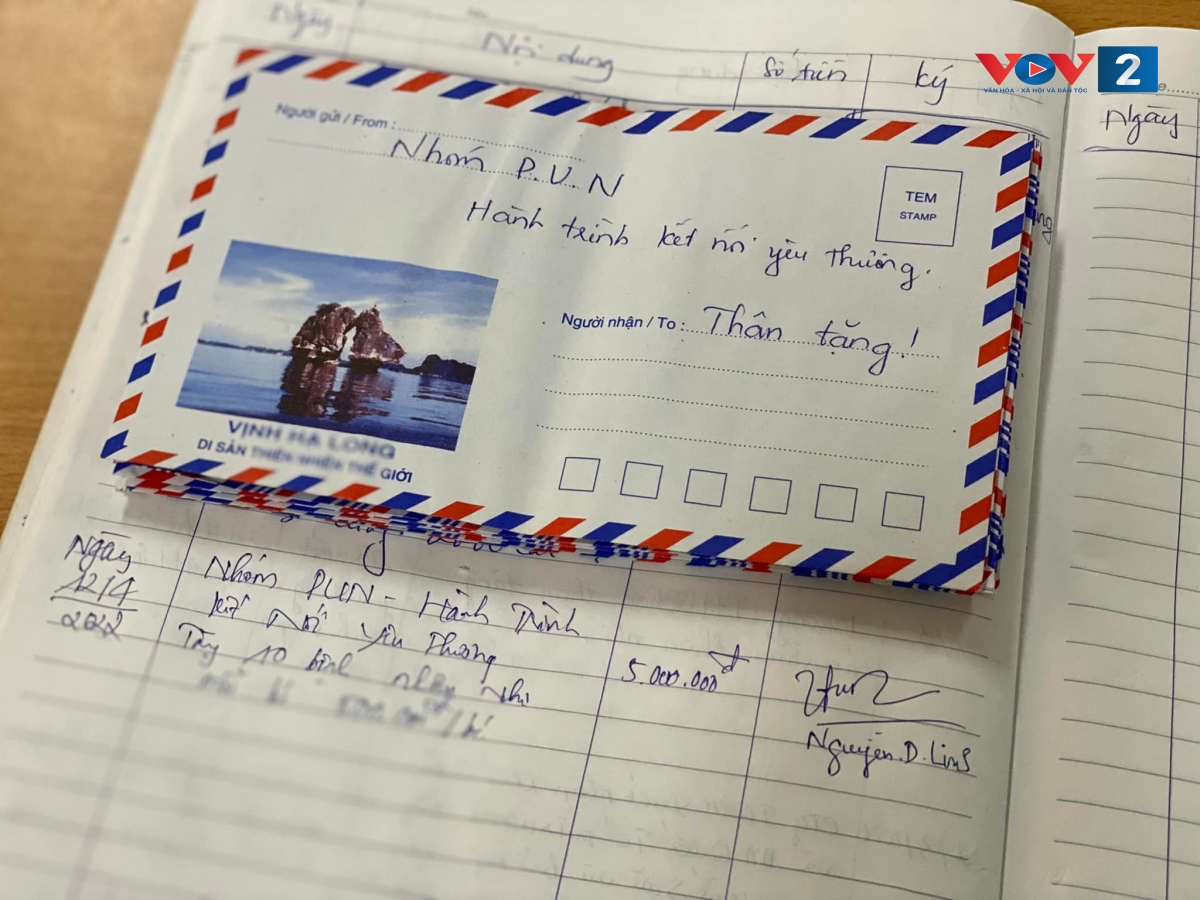 Ngày Nội dung Số tiền ký
VOV 2
VĂN HÓA - XÃ HỘI VÀ DÂN TỘC
Ngày
Người gửi / From :
Nhóm P.V.N
Hành trình kết nối yêu thương.
TEM
STAMP
Người nhận / To : Thân tặng!
VỊNH HẠ LONG
DI SẢN THIÊN NHIÊN THẾ GIỚI
Ngày
12/4
2022
Nhóm PVN - Hành Trình
kết Nối yêu Thương
Tặng 10 bệnh nhân Nhi
5.000.000đ
Nguyễn.D.Linh